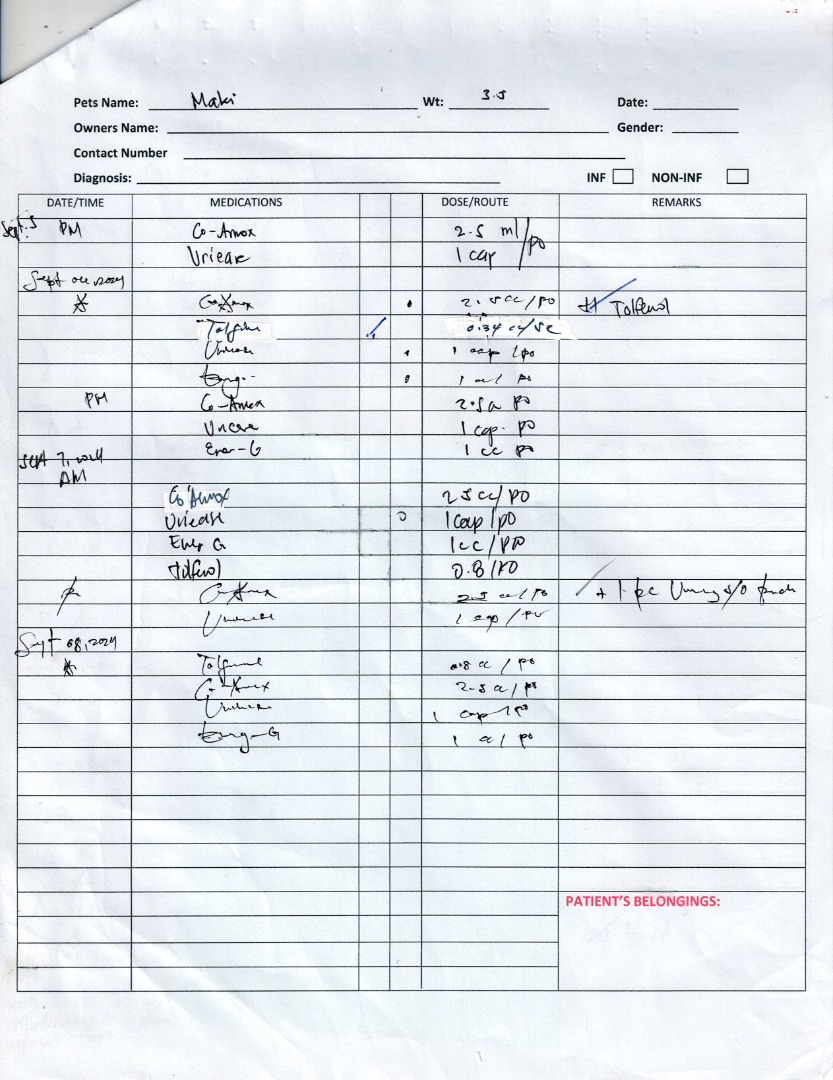 Pets Name: Maki Wt: 3.5 Date:
Owners Name: Gender:
Contact Number
Diagnosis: INF NON-INF
DATE/TIME MEDICATIONS DOSE/ROUTE REMARKS
Sept. 5 PM Co-Amox 2.5 ml/po
Uriease 1 cap
Sept 06, 2024
Co-Amox 2.5 cc/po Tolfenol
0.34 cc/SC
1 cap/po
PM Co-Amox 2.5 cc po
1 cap. po
Ener-G 1 cc po
Sept 7, 2024
AM
Co Amox 2.5 cc/PO
Uriease 1 cap/po
Ener G 1cc/PO
Tolfenol 0.8/PO
Co-Amox 2.5 cc/po + 1 pc
1 cap/po
Sept 08, 2024
0.8 cc/po
Co-Amox 2.5 cc/po
1 cap/po
Energ-G 1 cc/po
PATIENT'S BELONGINGS: